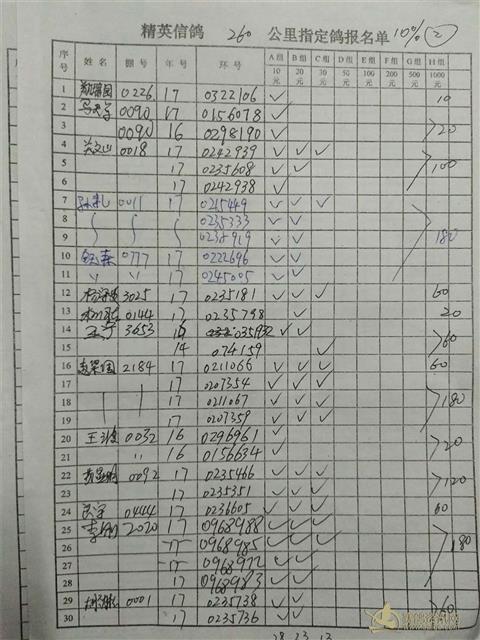 精英信鸽 260 公里指定鸽报名单 10% ②
序号 姓名 棚号 年号 环号 A组 10元 B组 20元 C组 30元 D组 50元 E组 100元 F组 200元 G组 500元 H组 1000元
1 0226 17 0322106 ✓ 10
2 0090 17 0156078 ✓
3 0090 16 0298190 ✓ >20
4 0018 17 0242939 ✓ ✓ ✓
5 17 0235608 ✓ ✓ >100
6 17 0242938 ✓
7 0011 17 0215449 ✓ ✓ ✓
8 0235333 ✓ ✓
9 ✓ ✓ >180
10 0777 17 0222696 ✓ ✓
11 〃 〃 17 0245005 ✓ ✓
12 3025 17 0235181 ✓ ✓ ✓ 60
13 0144 17 0235798 ✓ 20
14 王宁 3653 16 ✓ ✓
15 14 074159 ✓ >60
16 2184 17 0211066 ✓ ✓ ✓ 60
17 17 0207354 ✓ ✓ ✓
18 17 0211067 ✓ ✓ ✓ >180
19 17 0207359 ✓ ✓ ✓
20 王波 0032 16 0296961 ✓
21 〃 16 0156634 ✓ >20
22 0092 17 0235466 ✓ ✓ ✓
23 17 0235351 ✓ ✓ ✓ >120
24 0444 17 0236605 ✓ ✓ ✓ 60
25 李刚 2020 17 0968988 ✓ ✓ ✓
26 17 0968985 ✓ ✓ ✓ >180
27 17 ✓ ✓
28 17 0968983 ✓ ✓
29 0001 17 0235738 ✓ ✓
30 17 0235736 ✓ ✓ >60
28 23 13